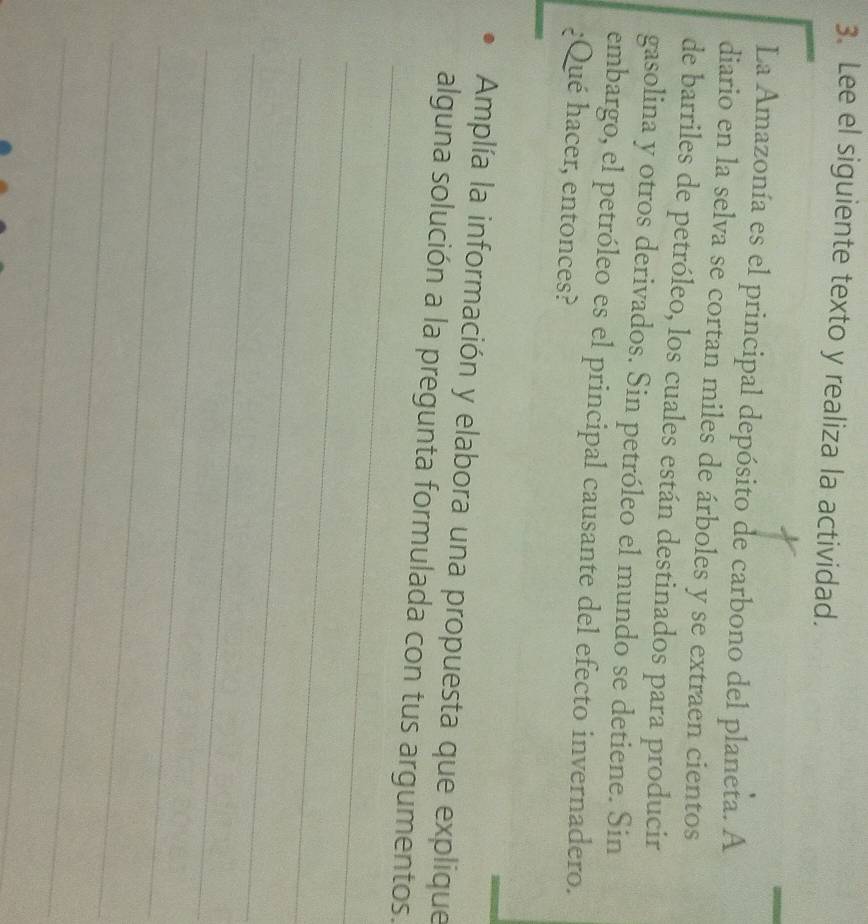 3. Lee el siguiente texto y realiza la actividad.
La Amazonía es el principal depósito de carbono del planeta. A
diario en la selva se cortan miles de árboles y se extraen cientos
de barriles de petróleo, los cuales están destinados para producir
gasolina y otros derivados. Sin petróleo el mundo se detiene. Sin
embargo, el petróleo es el principal causante del efecto invernadero.
¿Qué hacer, entonces?
• Amplía la información y elabora una propuesta que explique
alguna solución a la pregunta formulada con tus argumentos.